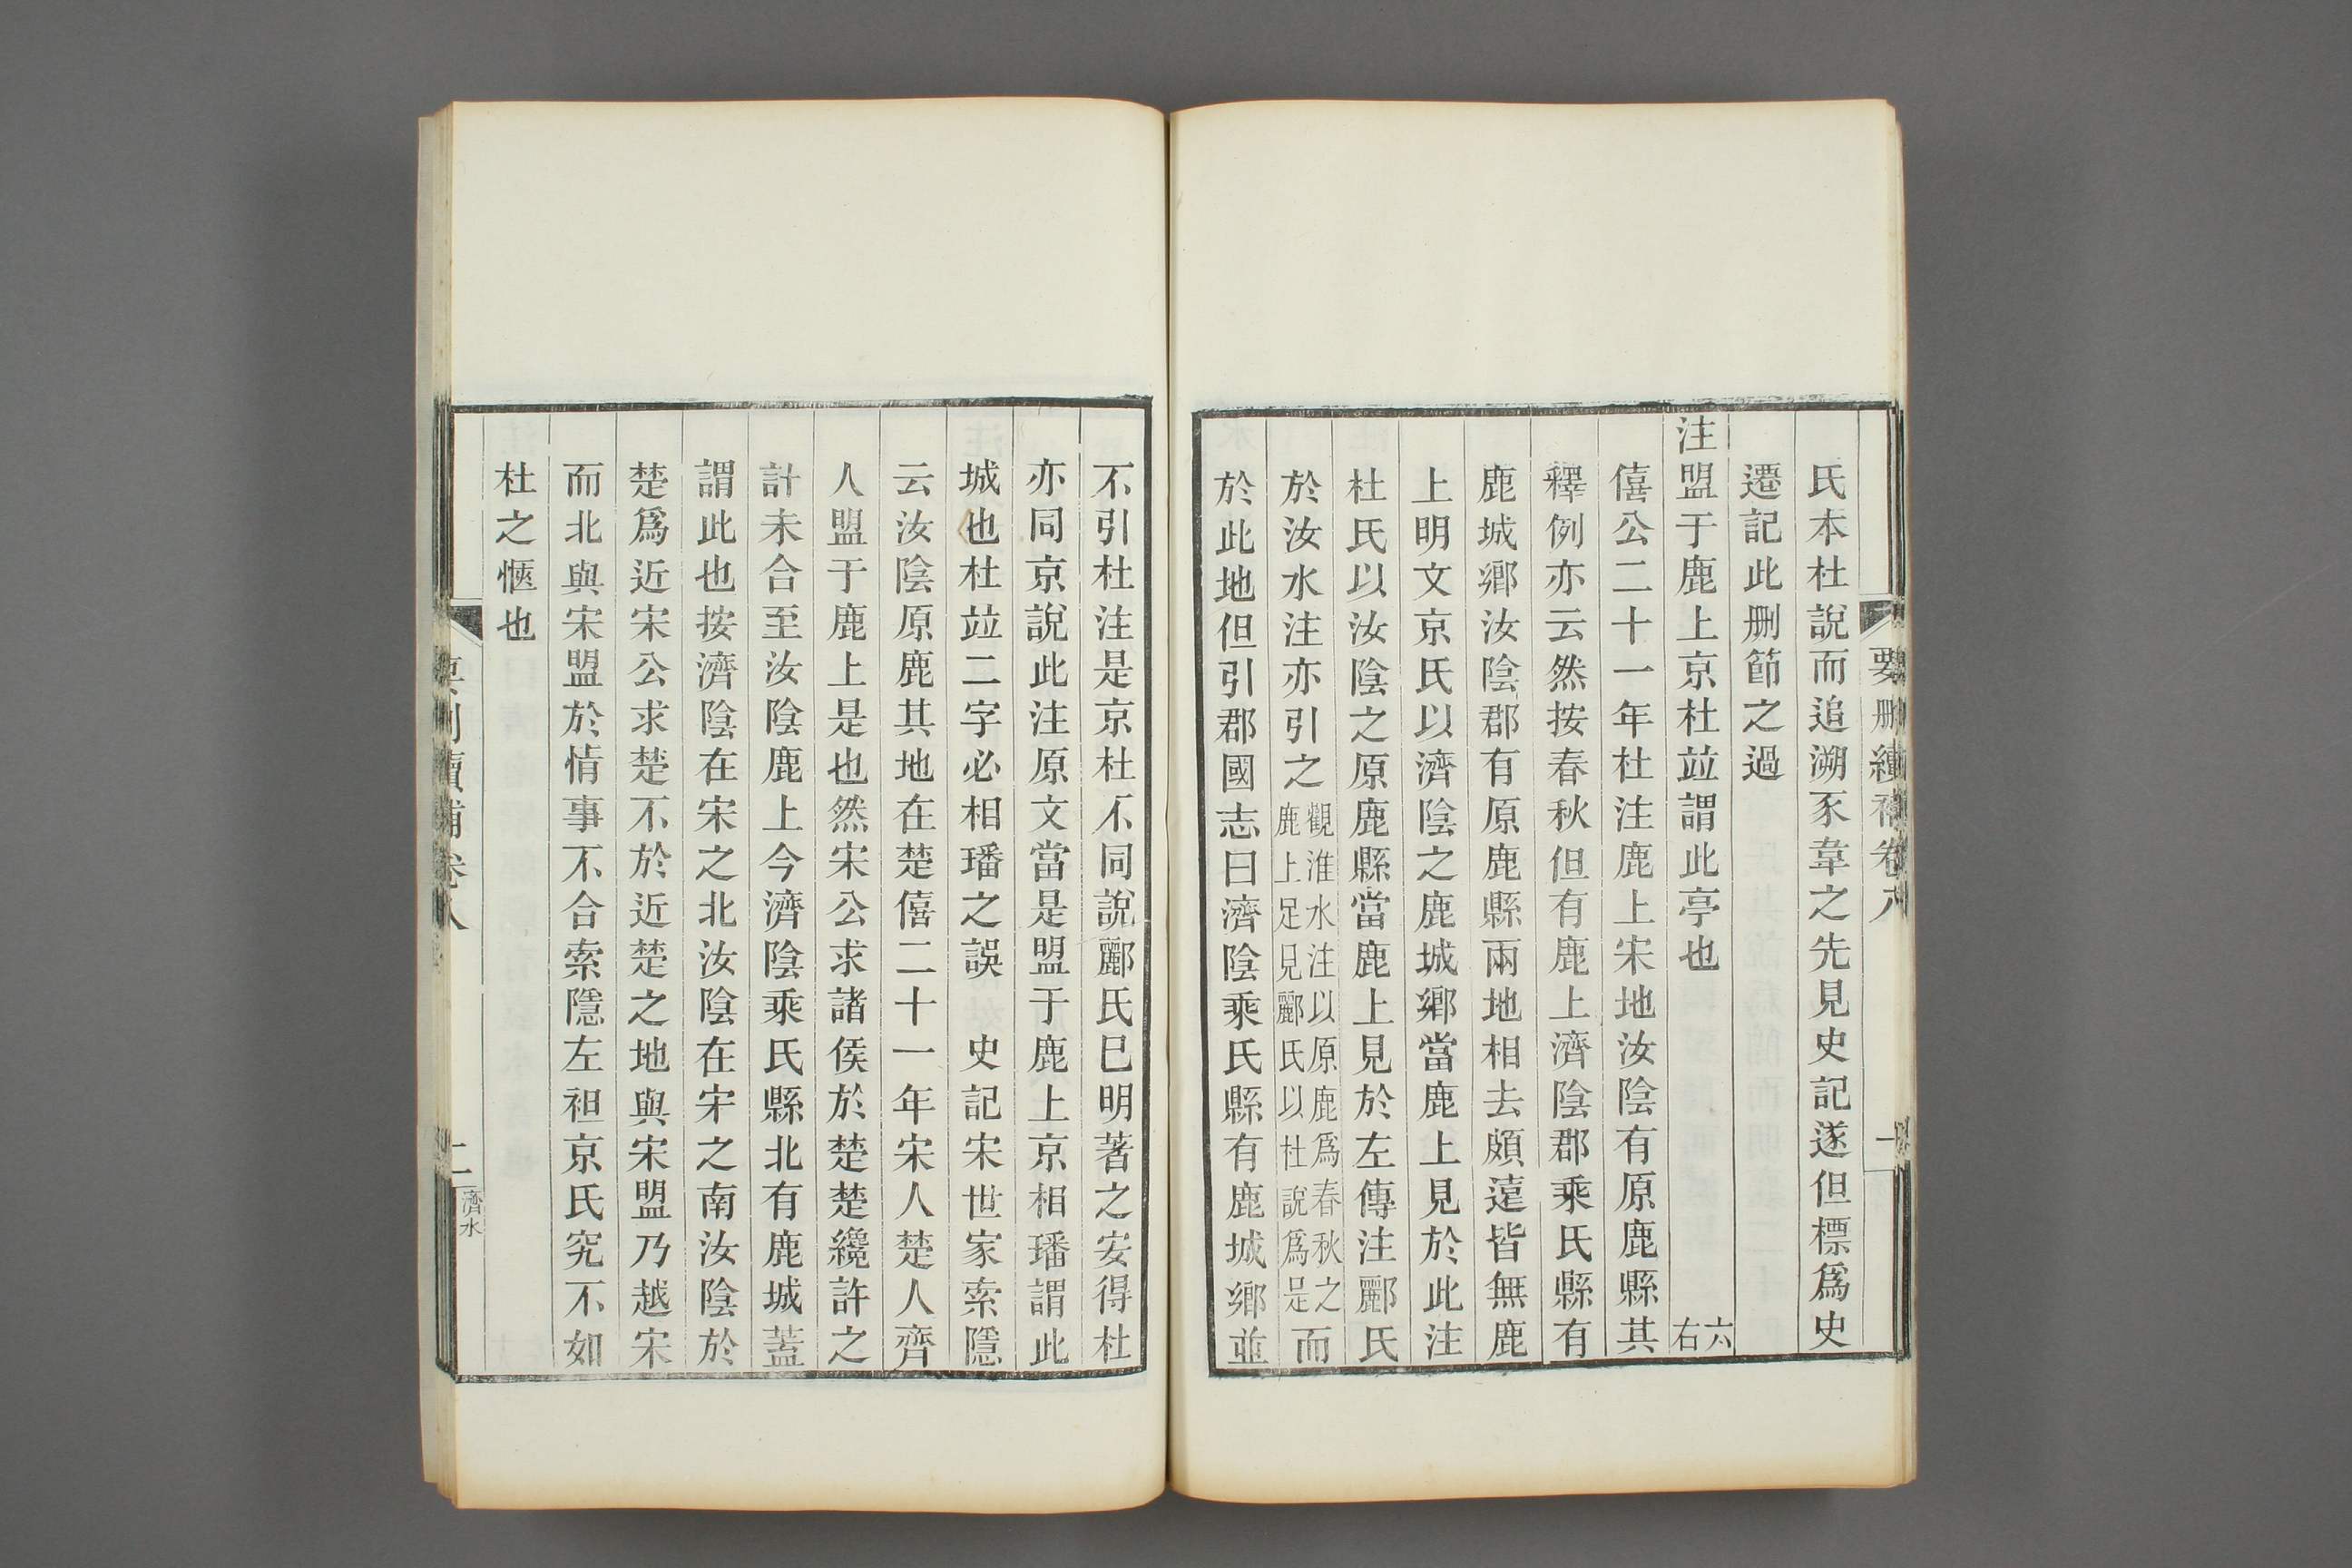 要刪續補卷八
一
氏本杜說而追溯豕韋之先見史記遂但標爲史
遷記此刪節之過
注盟于鹿上京杜竝謂此亭也
六右
僖公二十一年杜注鹿上宋地汝陰有原鹿縣其
釋例亦云然按春秋但有鹿上濟陰郡乘氏縣有
鹿城鄉汝陰郡有原鹿縣兩地相去頗遠皆無鹿
上明文京氏以濟陰之鹿城鄉當鹿上見於此注
杜氏以汝陰之原鹿縣當鹿上見於左傳注酈氏
於汝水注亦引之觀淮水注以原鹿爲春秋之鹿上足見酈氏以杜說爲是而
於此地但引郡國志曰濟陰乘氏縣有鹿城鄉並
不引杜注是京杜不同說酈氏巳明著之安得杜
亦同京說此注原文當是盟于鹿上京相璠謂此
城也杜竝二字必相璠之誤　史記宋世家索隱
云汝陰原鹿其地在楚僖二十一年宋人楚人齊
人盟于鹿上是也然宋公求諸侯於楚楚纔許之
計未合至汝陰鹿上今濟陰乘氏縣北有鹿城蓋
謂此也按濟陰在宋之北汝陰在宋之南汝陰於
楚爲近宋公求楚不於近楚之地與宋盟乃越宋
而北與宋盟於情事不合索隱左袒京氏究不如
杜之愜也
要刪續補卷八
二
濟水